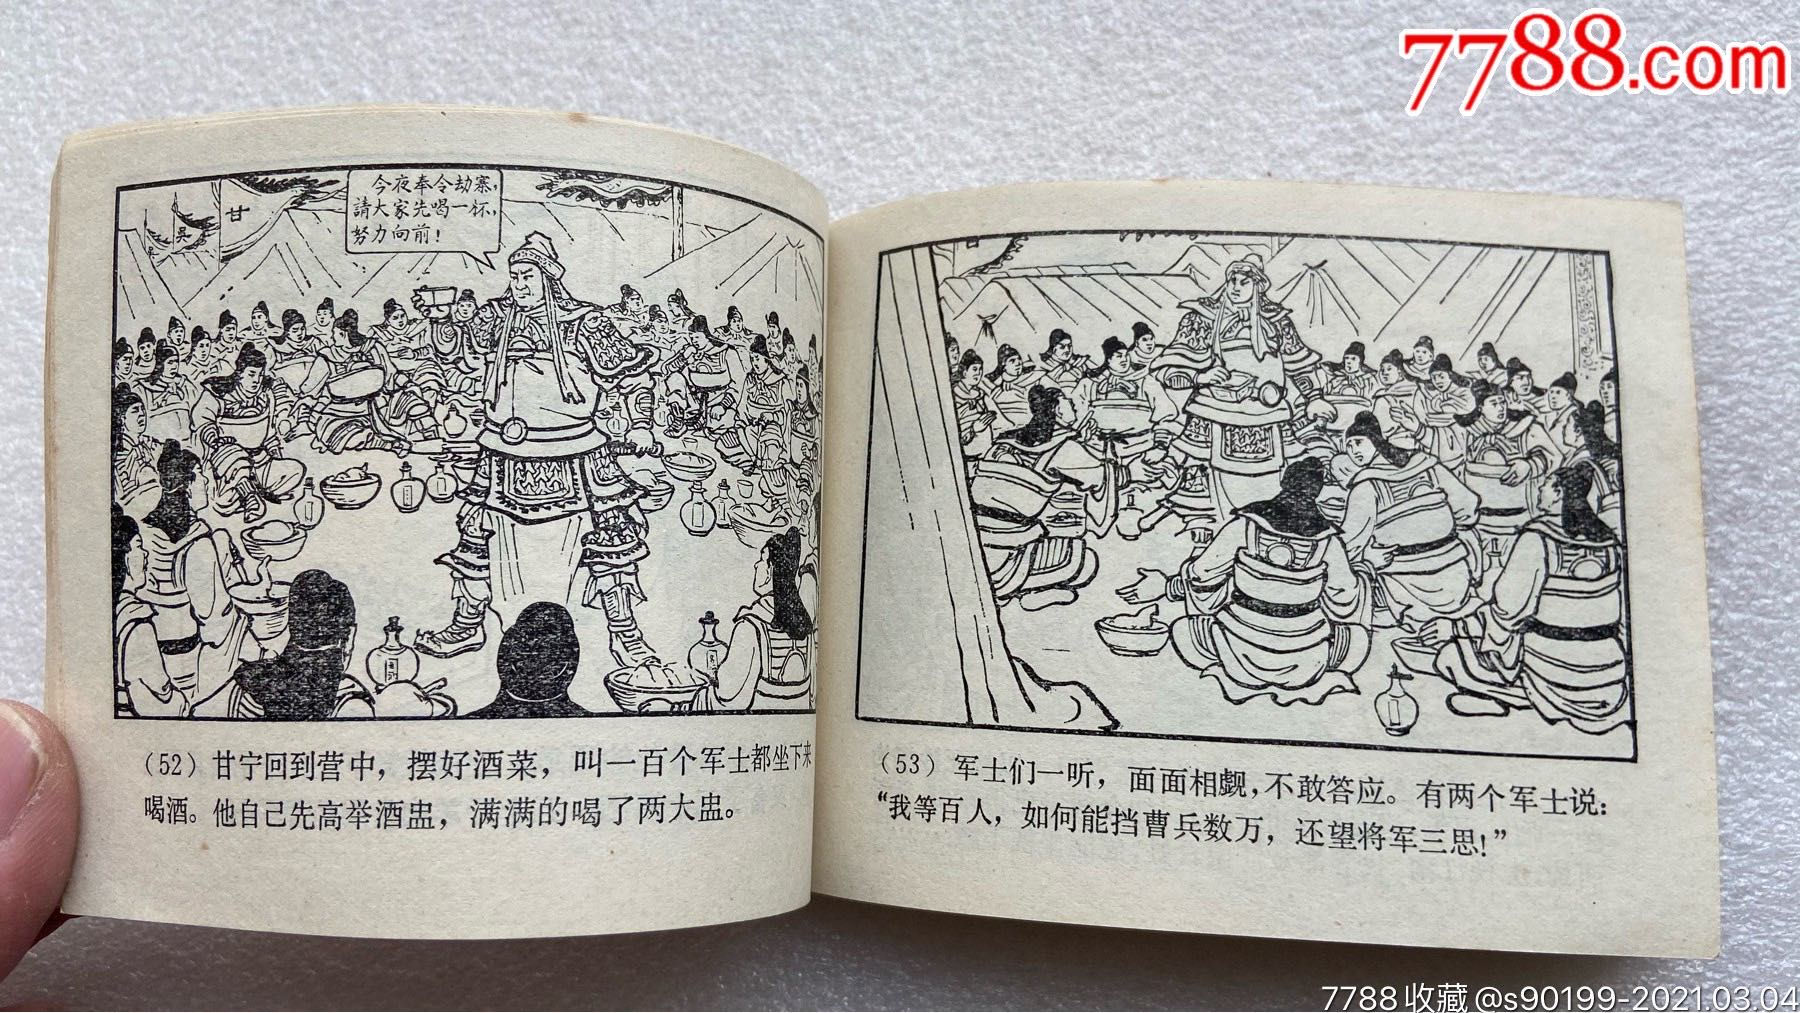 7788.com
甘
吳
今夜奉令劫寨,
請大家先喝一杯,
努力向前！
(52) 甘宁回到营中，摆好酒菜，叫一百个军士都坐下来
喝酒。他自己先高举酒盅，满满的喝了两大盅。
(53) 军士们一听，面面相觑，不敢答应。有两个军士说：
“我等百人，如何能挡曹兵数万，还望将军三思！”
7788收藏@s90199-2021.03.04